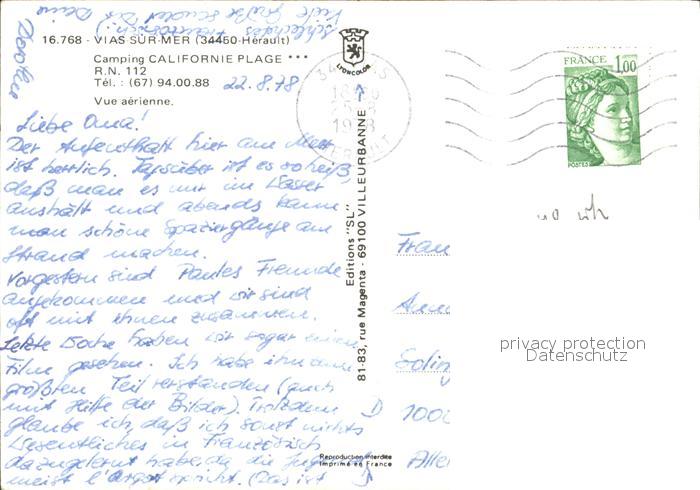 16.768 - VIAS SUR MER (34450-Hérault)
Camping CALIFORNIE PLAGE ***
R.N. 112
Tél. : (67) 94.00.88
22.8.78
Vue aérienne.
LYONCOLOR
FRANCE 1,00
POSTES
Liebe Oma!
Der Aufenthalt hier am Meer
ist herrlich. Tagsüber ist es so heiß,
daß man es nur im Wasser
aushält und abends kann
man schöne Spaziergänge am
Strand machen.
Vorgestern sind Freunde
angekommen und wir sind
oft mit ihnen zusammen.
Letzte Woche haben wir sogar einen
Film gesehen. Ich habe ihn zum
größten Teil verstanden (auch
mit Hilfe der Bilder). Trotzdem
glaube ich, daß ich sonst nichts
Wesentliches in Französisch
dazugelernt habe, da die
meist l'Argot spricht. (Das ist
schlechtes Französisch!)
Viele Grüße sendet Dir Deine
Dorothee
Editions "SL"
81-83, rue Magenta - 69100 VILLEURBANNE
Reproduction interdite
Imprimé en France
Frau
Soling
D 1000
privacy protection
Datenschutz